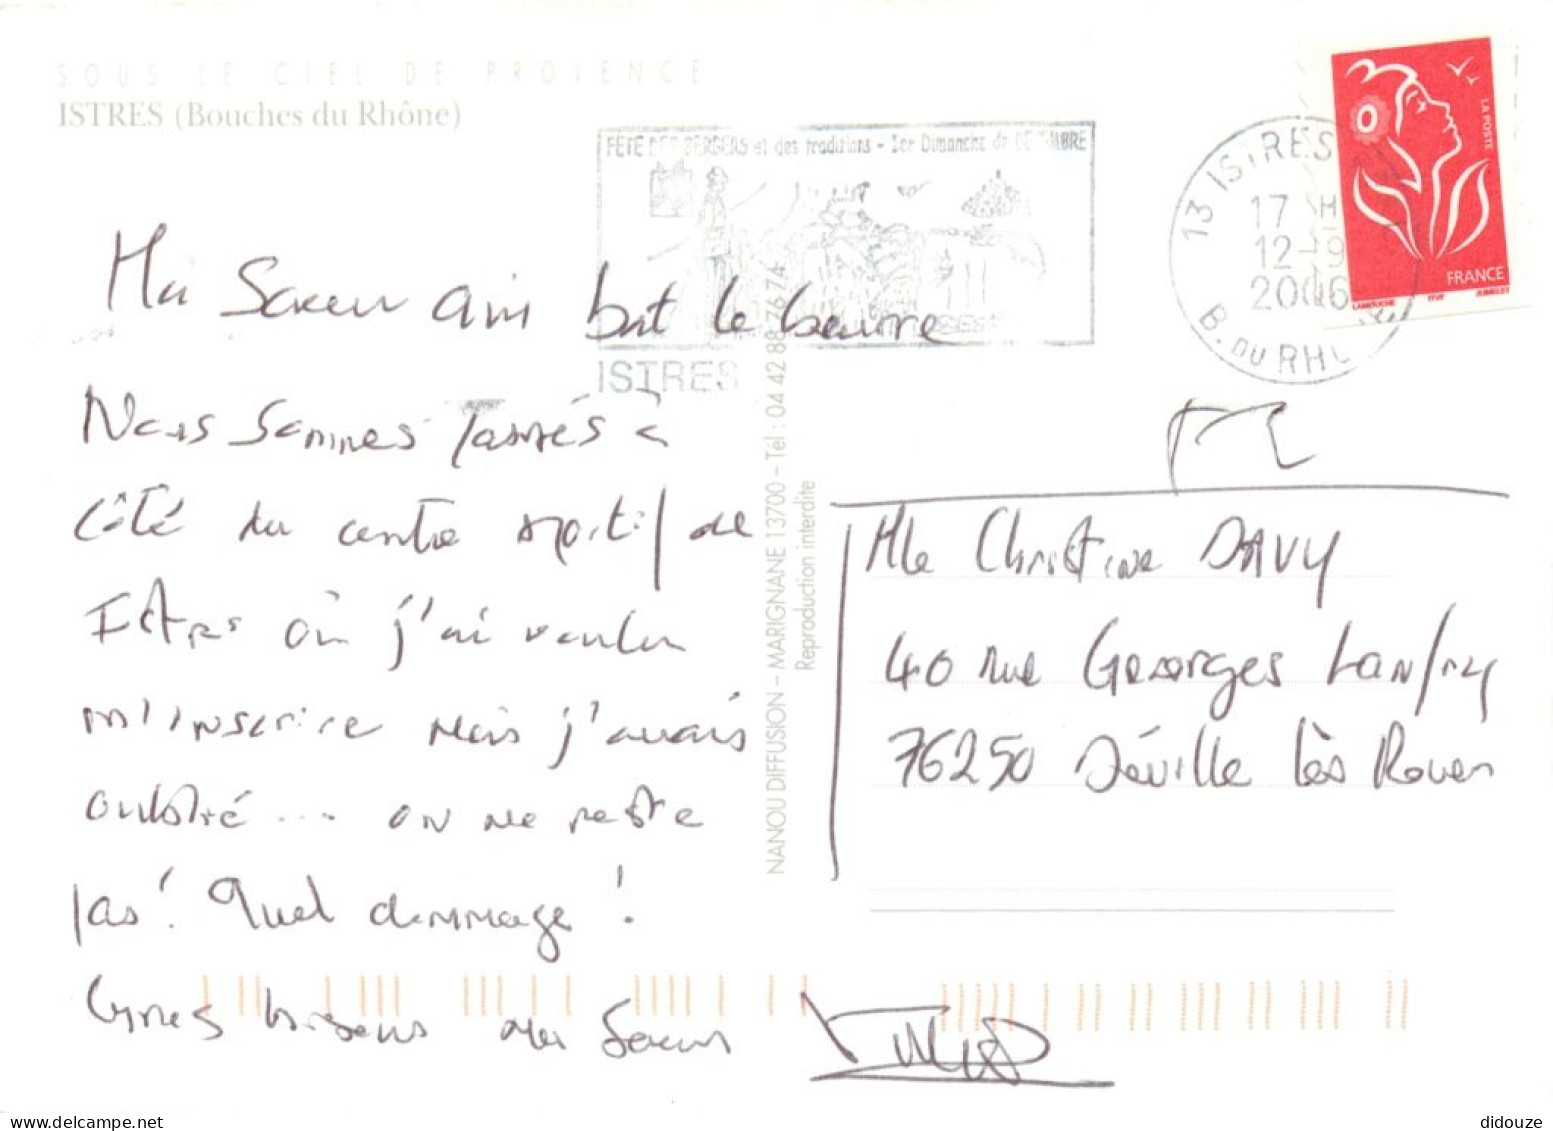 SOUS LE CIEL DE PROVENCE
ISTRES (Bouches du Rhône)
FÊTE DES BERGERS et des traditions - 1er Dimanche de DECEMBRE
ISTRES
13 ISTRES
17 H
12-9
2006
B. DU RHONE
LA POSTE
FRANCE
LAMOUCHE ITVF JUMELET
Ma Soeur qui bat le beurre
Nous sommes passés à
côté du centre sportif de
Istres où j'ai voulu
m'inscrire mais j'avais
oublié... on ne reste
pas! Quel dommage!
Gros bisous ma Soeur
NANOU DIFFUSION - MARIGNANE 13700 - Tél : 04 42 88 76 74
Reproduction interdite
Mlle Christine DAVY
40 rue Georges Lanfry
76250 Déville lès Rouen
didouze